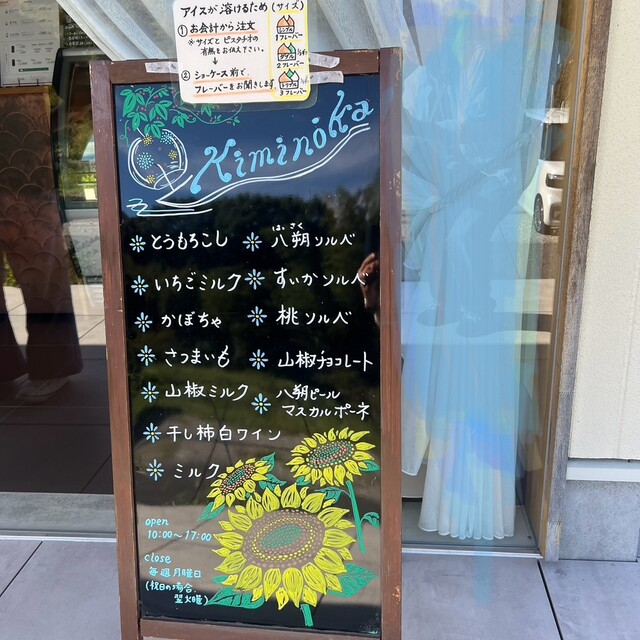 アイスが溶けるため(サイズ)
① お会計から注文
※サイズとピスタチオの
有無をお伝え下さい。
↓
② ショーケース前で、
フレーバーをお聞きします。
シングル
1フレーバー
ダブル
2フレーバー
トリプル
3フレーバー
Kiminōka
とうもろこし
いちごミルク
かぼちゃ
さつまいも
山椒ミルク
干し柿白ワイン
ミルク
はっさく
八朔ソルベ
すいかソルベ
桃ソルベ
山椒チョコレート
八朔ピール
マスカルポーネ
open
10:00〜17:00
close
毎週月曜日
(祝日の場合、
翌火曜)